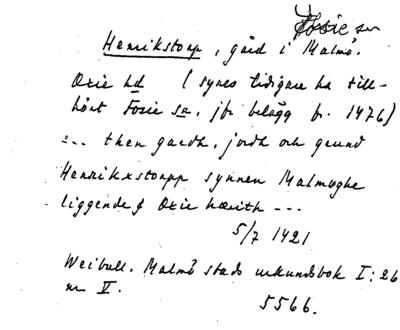 Fosie sn
Henrikstorp, gård i Malmö.
Oxie hd (synes tidigare ha till-
hört Fosie sn, jfr belägg fr. 1476)
"... then gardh, jordh och grund
Henrikxstorpp synnen Malmøghe
liggende j Oxie hærith ---
5/7 1421
Weibull. Malmö stads urkundsbok I: 26
nr V.
5566.